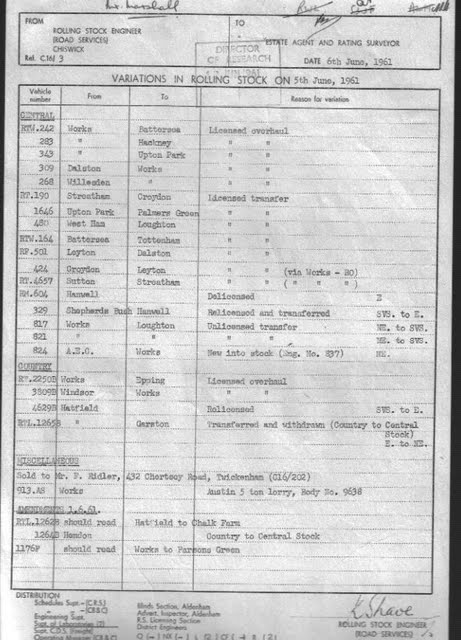 Mr. Marshall
FROM
TO
ROLLING STOCK ENGINEER
(ROAD SERVICES)
CHISWICK
ESTATE AGENT AND RATING SURVEYOR
DIRECTOR
OF RESEARCH
JUN 1961
Ref. C.16/ 3
DATE 6th June, 1961
VARIATIONS IN ROLLING STOCK ON 5th June, 1961
Vehicle number From To Reason for variation
CENTRAL
RTW.242 Works Battersea Licensed overhaul
283 " Hackney " "
343 " Upton Park " "
309 Dalston Works " "
268 Willesden " " "
RT.190 Streatham Croydon Licensed transfer
1646 Upton Park Palmers Green " "
480 West Ham Loughton " "
RTW.164 Battersea Tottenham " "
RF.501 Leyton Dalston " "
424 Croydon Leyton " " (via Works - BO)
RT.4657 Sutton Streatham " " ( " " " )
RM.604 Hanwell Delicensed E
329 Shepherds Bush Hanwell Relicensed and transferred SVS. to E.
817 Works Loughton Unlicensed transfer NE. to SVS.
821 " " " " NE. to SVS.
824 A.E.C. Works New into stock (Eng. No. 837) NE.
COUNTRY
RT.2250B Works Epping Licensed overhaul
3809B Windsor Works " "
4629B Hatfield Relicensed SVS. to E.
RTL.1265B " Garston Transferred and withdrawn (Country to Central
Stock)
E. to NE.
MISCELLANEOUS
Sold to Mr. F. Ridler, 432 Chertsey Road, Twickenham (C16/202)
913.AS Works Austin 5 ton lorry, Body No. 9638
AMENDMENTS 1.6.61.
RTL.1262B should read Hatfield to Chalk Farm
1264D Hendon Country to Central Stock
1176P should read Works to Parsons Green
DISTRIBUTION
Schedules Supt.-(C.R.S.)
-(C.B.& C)
Engineering Supt.
Supt. of Laboratories (2)
Supt. C.D.S. (Freight)
Operating Manager (C.B.& C)
Minds Section, Aldenham
Advert. Inspector, Aldenham
R.S. Licensing Section
District Engineers
K Shave
ROLLING STOCK ENGINEER
(ROAD SERVICES)